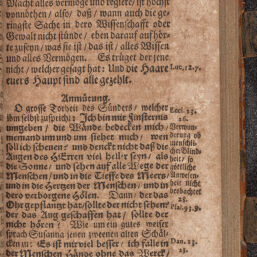 Macht alles vermöge und regiere/ ist höchst
vonnöthen/ also/ daß/ wann auch die ge-
ringste Sache in dero Wissenschafft oder
Gewalt nicht stünde/ eben darauf auffhör-
te zuseyn/ was sie ist/ das ist/ alles Wissen
und alles Vermögen. Es trüget der jene
nicht/ welcher gesagt hat: Und die Haare
euers Haupt sind alle gezehlt.
Luc. 12. 7.
Anmütung.
O grosse Torheit des Sünders/ welcher
ihm selbst zuspricht: Ich bin mit Finsternis
umgeben/ die Wände bedecken mich/
niemand um und um siehet mich/ wen
soll ich scheuen? und dencket nicht/ daß die
Augen des HErren viel heller seyn/ als
die Sonne/ und sehen auf alle Wege der
Menschen/ und in die Tieffe des Meers/
und in die Hertzen der Menschen/ und in
dero verborgene Hölen. Dann/ der das
Ohr gepflantzt hat/ sollte der nicht sehen?
der das Aug geschaffen hat/ sollte der
nicht hören? Wie um ein gutes weiser
sprach Susanna jenen zweenen alten Schäl-
cken zu: Es ist mir viel besser/ ich falle in
der Menschen Hände ohne das Werck/
Eccl. 23.
26.
menschli-
cher Blind-
heit/ so
göttliche
nicht
beobachtet
28.
Psal. 93. 9.
Dan. 13.
23.